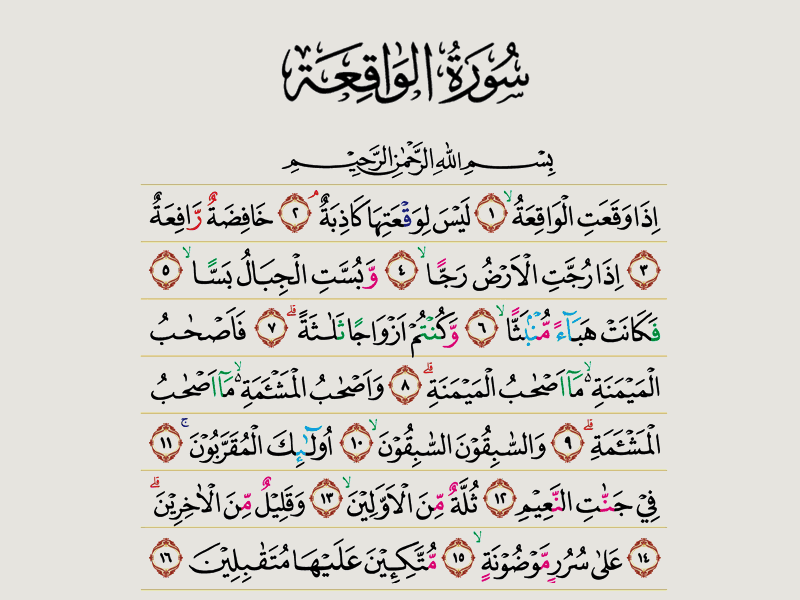 سُورَةُ الوَاقِعَة
بِسْمِ اللهِ الرَّحْمٰنِ الرَّحِيْمِ
اِذَا وَقَعَتِ الْوَاقِعَةُ ۙ ﴿١﴾ لَيْسَ لِوَقْعَتِهَا كَاذِبَةٌ ۘ ﴿٢﴾ خَافِضَةٌ رَّافِعَةٌ
﴿٣﴾ اِذَا رُجَّتِ الْاَرْضُ رَجًّا ۙ ﴿٤﴾ وَّبُسَّتِ الْجِبَالُ بَسًّا ۙ ﴿٥﴾
فَكَانَتْ هَبَآءً مُّنْۢبَثًّا ۙ ﴿٦﴾ وَّكُنْتُمْ اَزْوَاجًا ثَلٰثَةً ۗ ﴿٧﴾ فَاَصْحٰبُ
الْمَيْمَنَةِ ۙ مَآ اَصْحٰبُ الْمَيْمَنَةِ ۗ ﴿٨﴾ وَاَصْحٰبُ الْمَشْـَٔمَةِ ۙ مَآ اَصْحٰبُ
الْمَشْـَٔمَةِ ۗ ﴿٩﴾ وَالسّٰبِقُوْنَ السّٰبِقُوْنَ ۙ ﴿١٠﴾ اُولٰٓئِكَ الْمُقَرَّبُوْنَ ۚ ﴿١١﴾
فِيْ جَنّٰتِ النَّعِيْمِ ﴿١٢﴾ ثُلَّةٌ مِّنَ الْاَوَّلِيْنَ ۙ ﴿١٣﴾ وَقَلِيْلٌ مِّنَ الْاٰخِرِيْنَ ۗ
﴿١٤﴾ عَلٰى سُرُرٍ مَّوْضُوْنَةٍ ۙ ﴿١٥﴾ مُّتَّكِـِٕيْنَ عَلَيْهَا مُتَقٰبِلِيْنَ ﴿١٦﴾